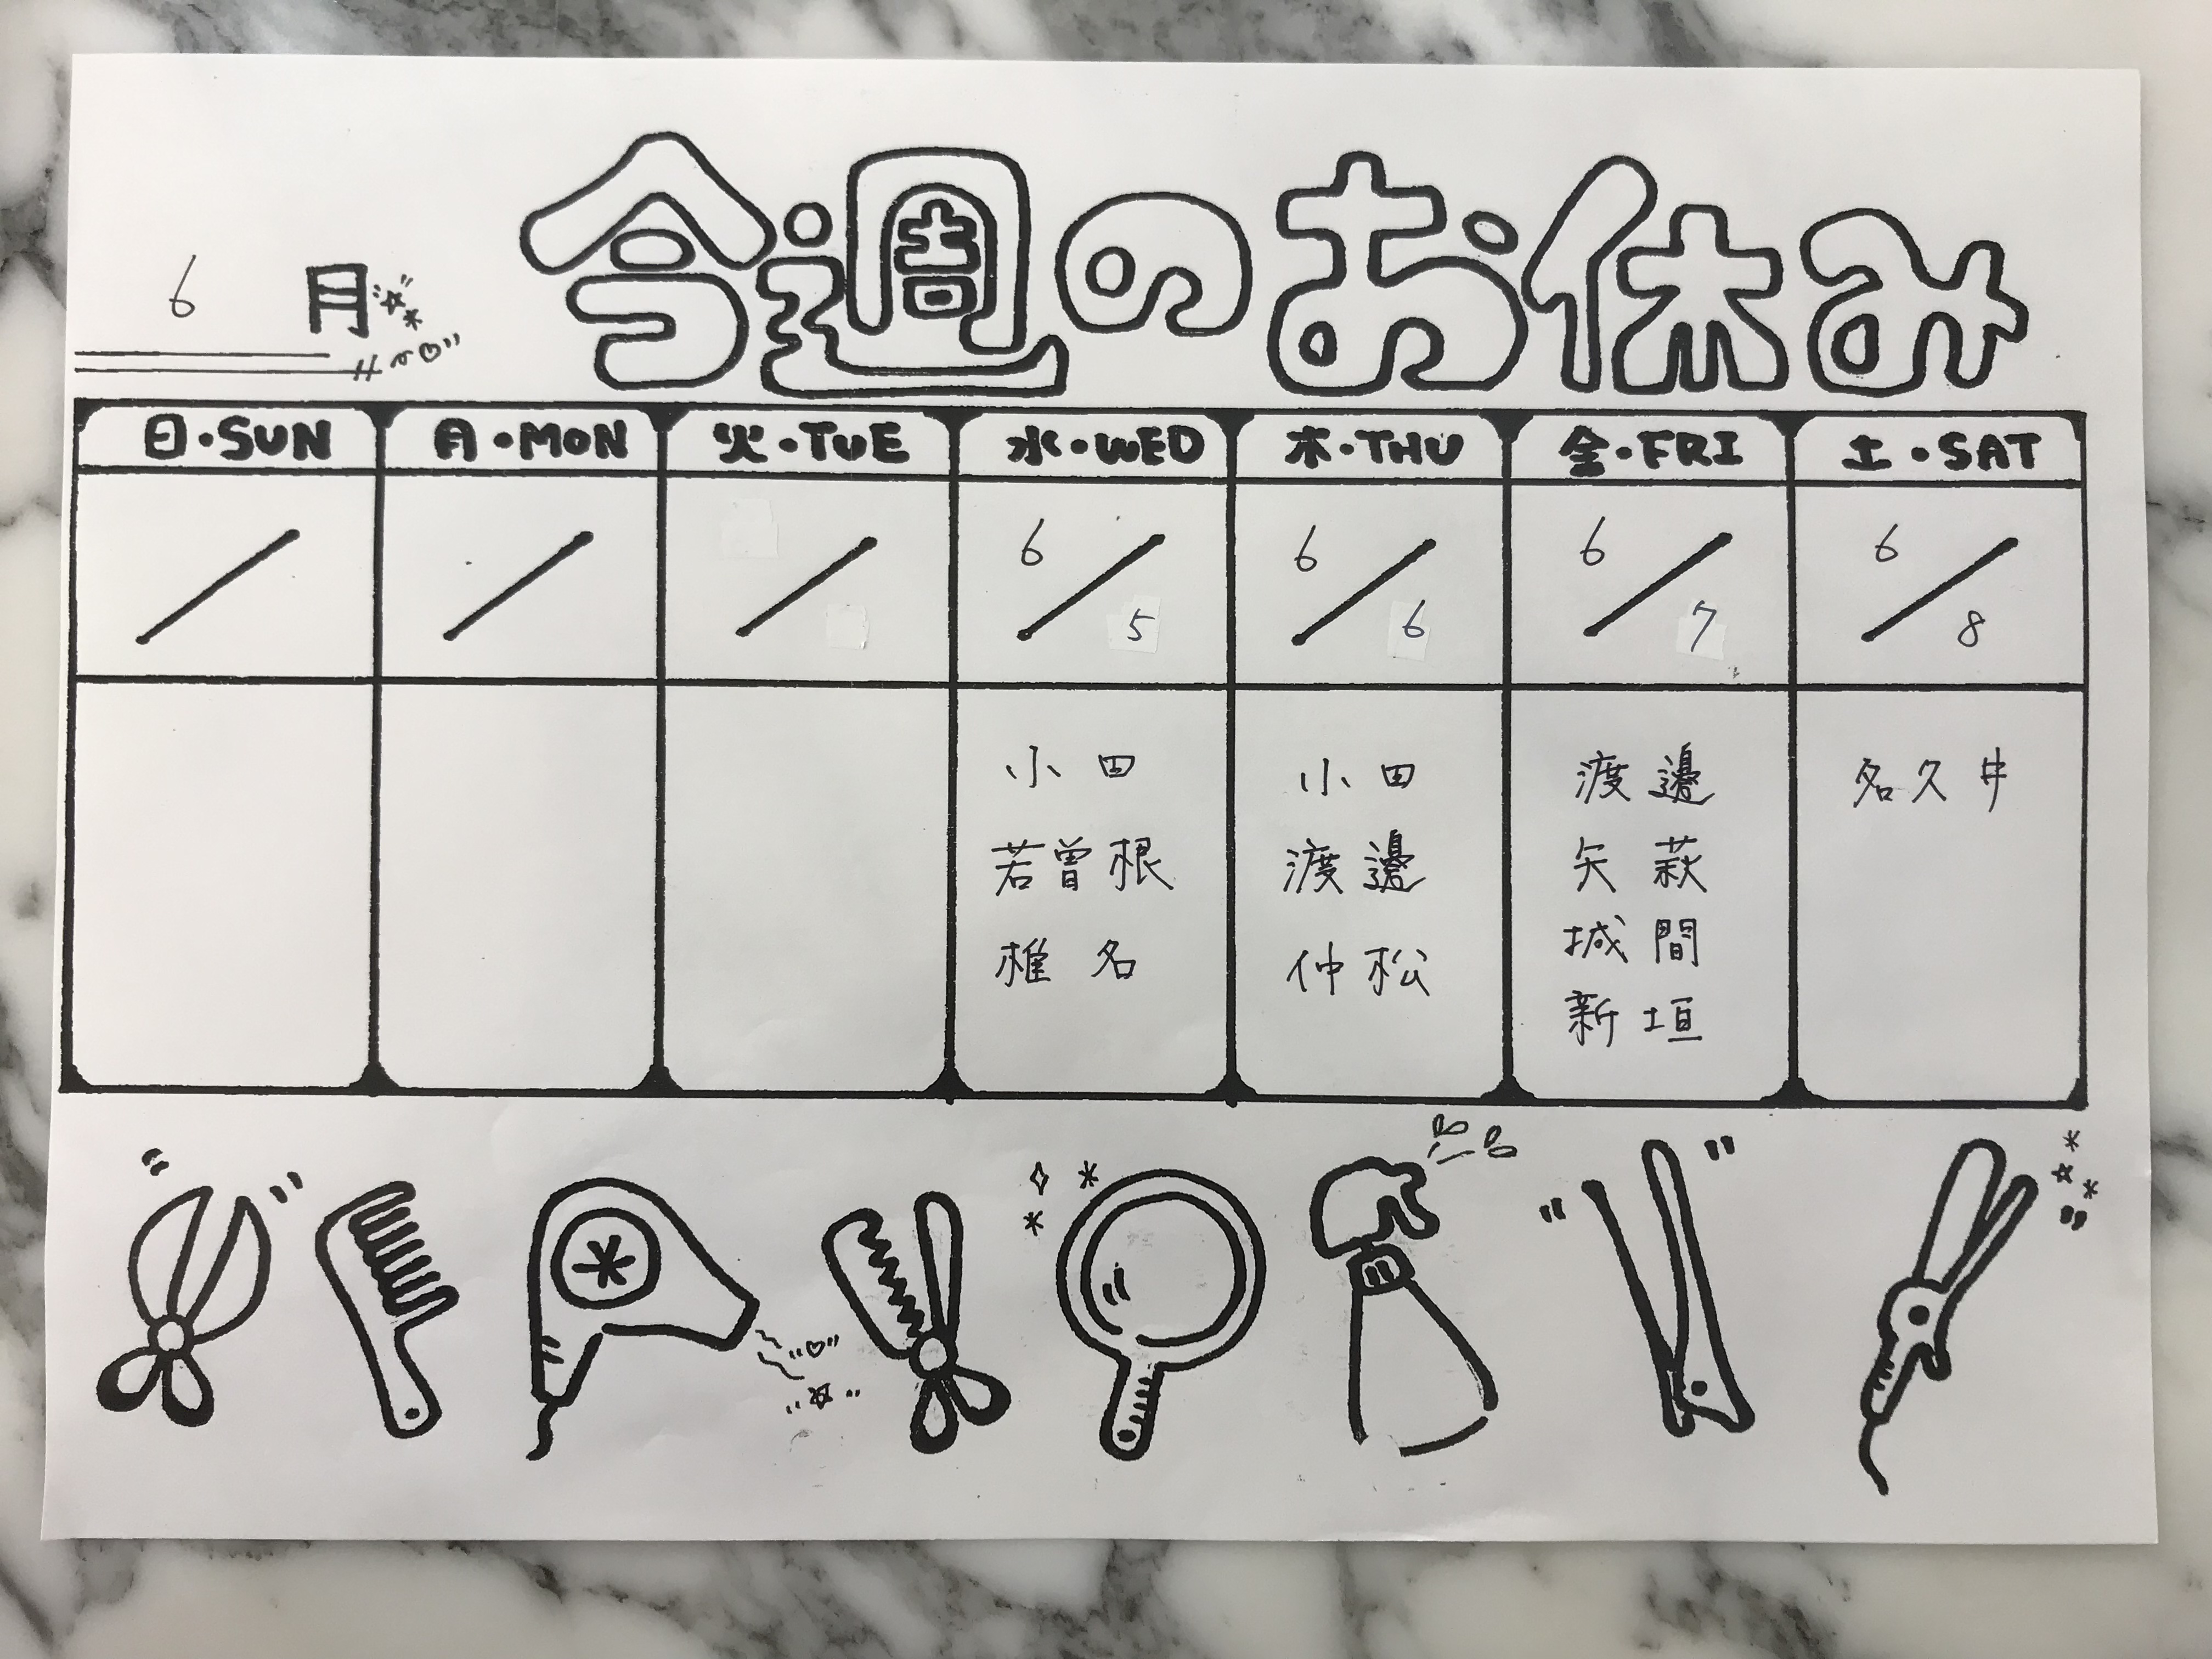 6月
今週のお休み
日・SUN 月・MON 火・TUE 水・WED 木・THU 金・FRI 土・SAT
6/5 6/6 6/7 6/8
小田
若曽根
椎名
小田
渡邊
仲松
渡邊
矢萩
城間
新垣
名久井